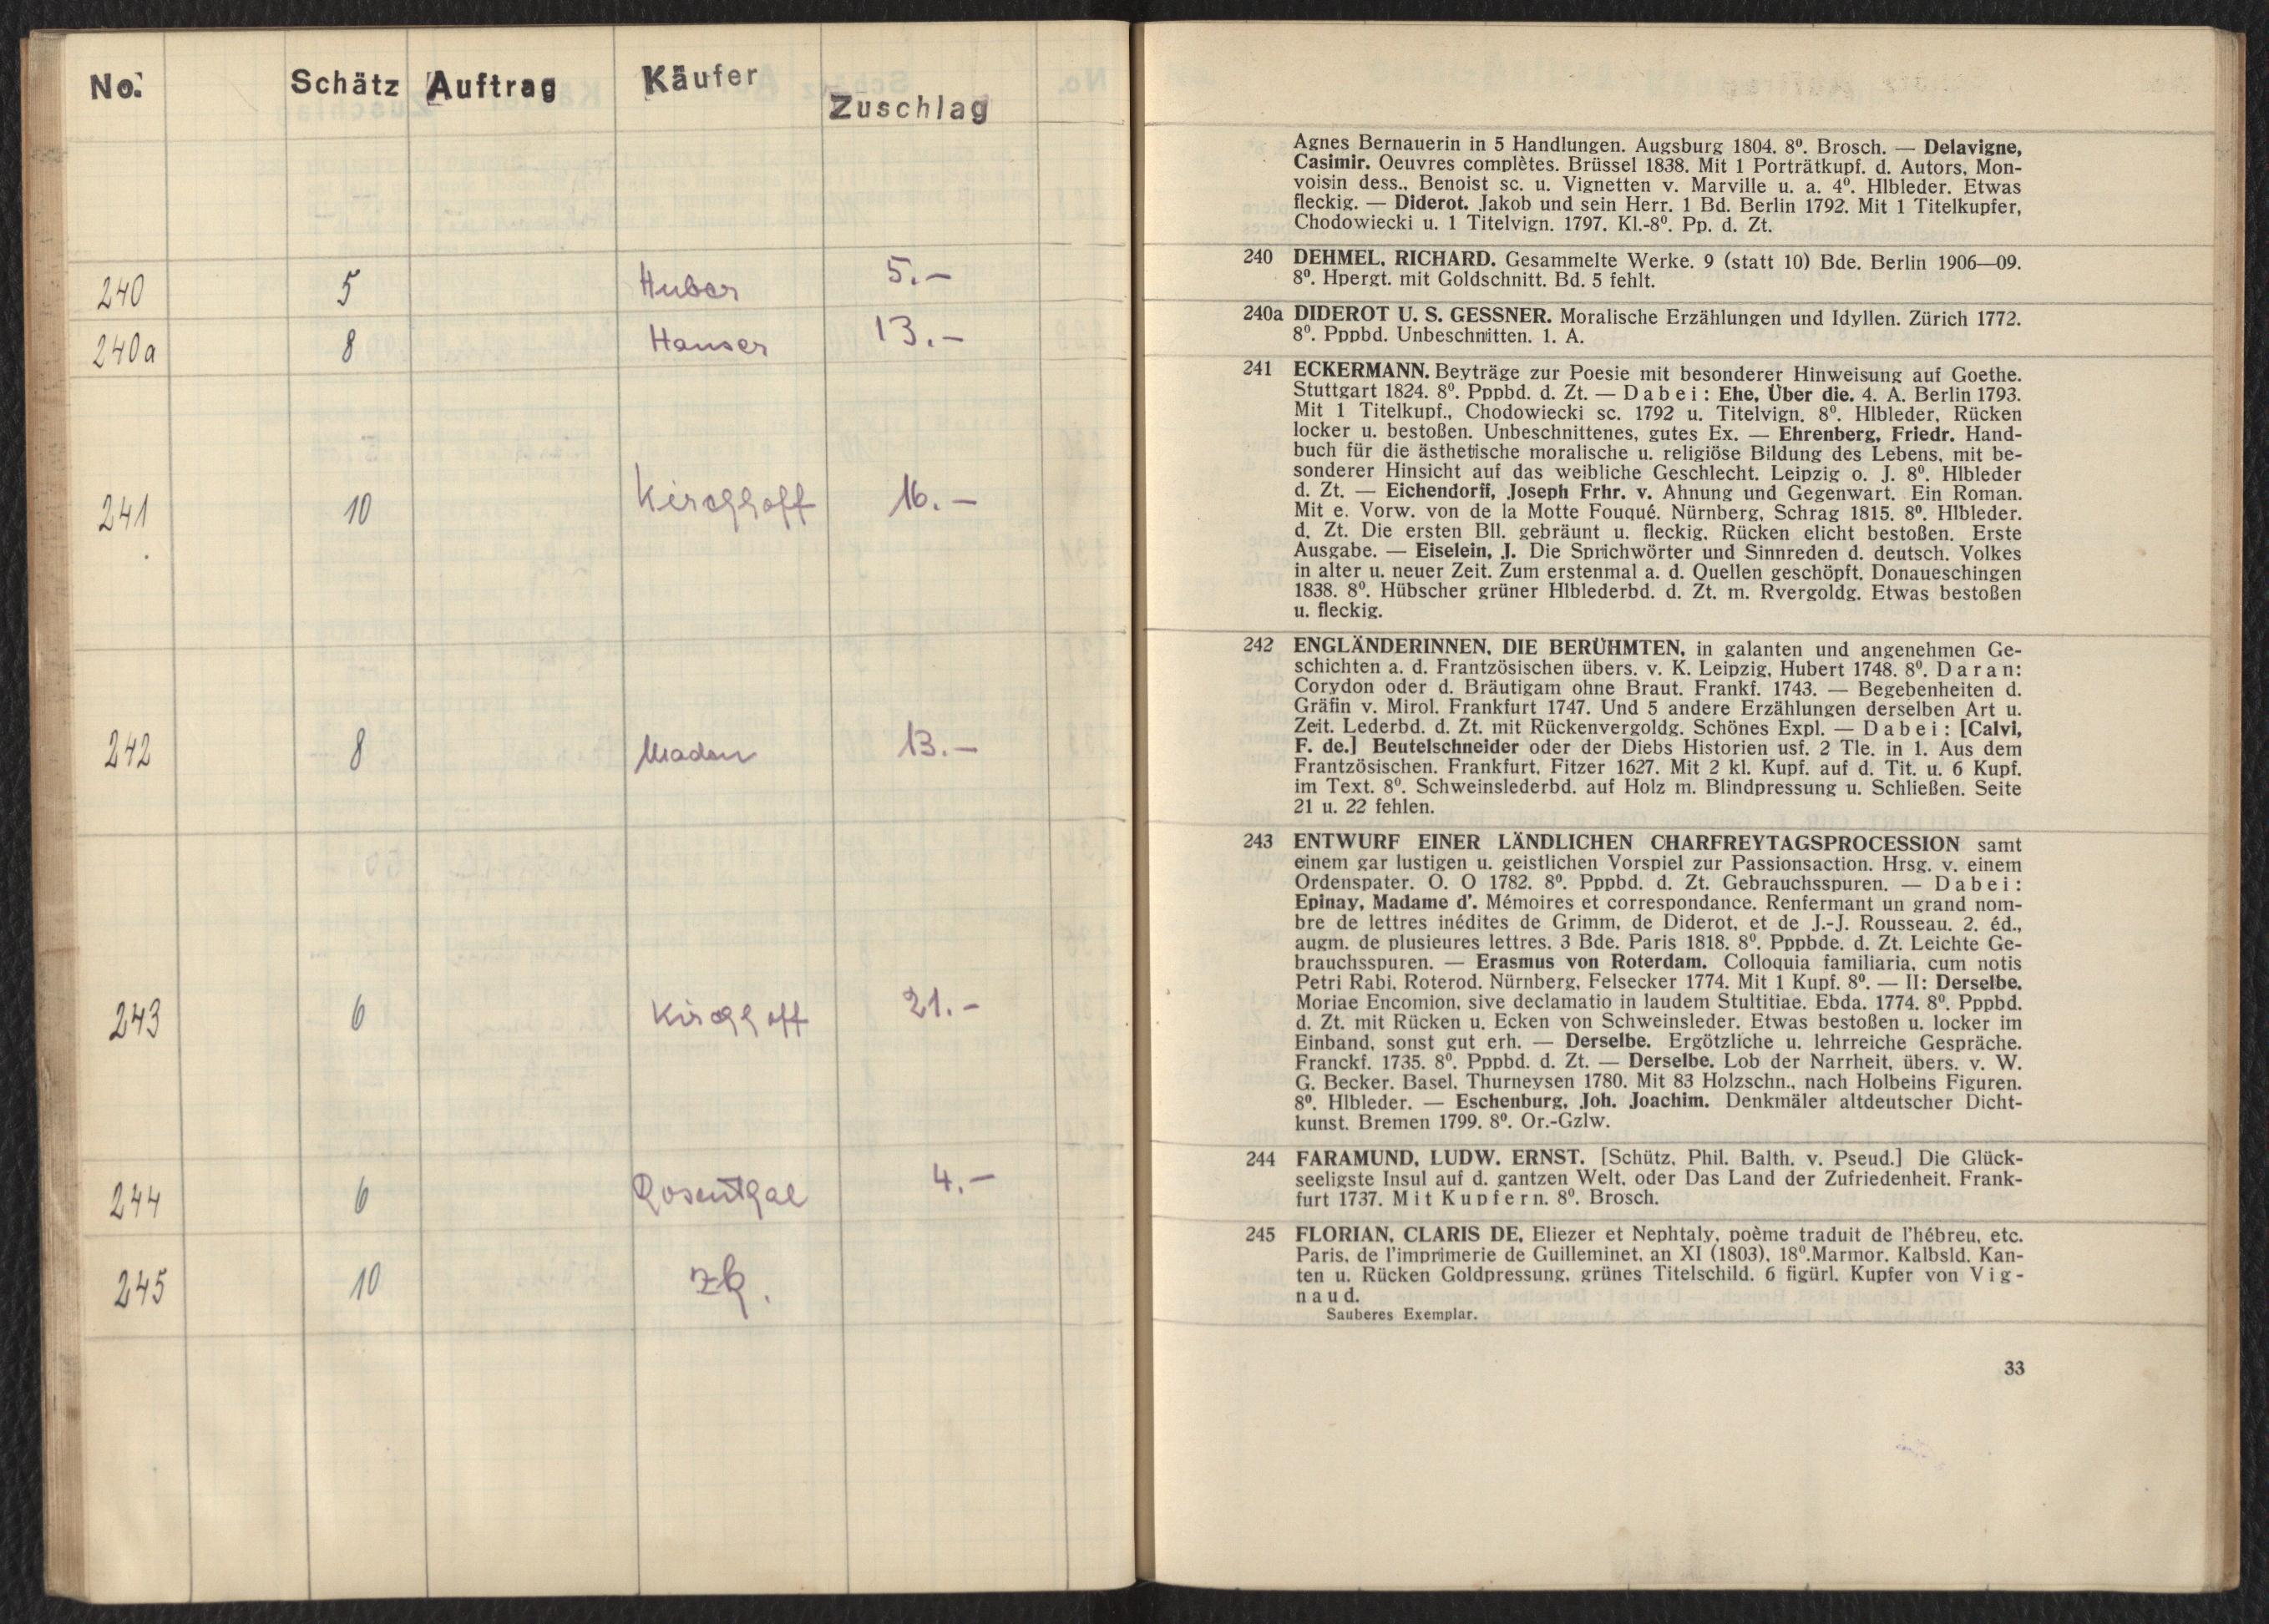 No. Schätz Auftrag Käufer Zuschlag
240 5 Huber 5.–
240a 8 Hauser 13.–
241 10 Kirchhoff 16.–
242 8 13.–
243 6 Kirchhoff 21.–
244 6 Rosenthal 4.–
245 10
Agnes Bernauerin in 5 Handlungen. Augsburg 1804. 8⁰. Brosch. — Delavigne,
Casimir. Oeuvres complètes. Brüssel 1838. Mit 1 Porträtkupf. d. Autors, Mon-
voisin dess., Benoist sc. u. Vignetten v. Marville u. a. 4⁰. Hlbleder. Etwas
fleckig. — Diderot. Jakob und sein Herr. 1 Bd. Berlin 1792. Mit 1 Titelkupfer,
Chodowiecki u. 1 Titelvign. 1797. Kl.-8⁰. Pp. d. Zt.
240 DEHMEL, RICHARD. Gesammelte Werke. 9 (statt 10) Bde. Berlin 1906—09.
8⁰. Hpergt. mit Goldschnitt. Bd. 5 fehlt.
240a DIDEROT U. S. GESSNER. Moralische Erzählungen und Idyllen. Zürich 1772.
8⁰. Pppbd. Unbeschnitten. 1. A.
241 ECKERMANN. Beyträge zur Poesie mit besonderer Hinweisung auf Goethe.
Stuttgart 1824. 8⁰. Pppbd. d. Zt. — Dabei: Ehe, Über die. 4. A. Berlin 1793.
Mit 1 Titelkupf., Chodowiecki sc. 1792 u. Titelvign. 8⁰. Hlbleder, Rücken
locker u. bestoßen. Unbeschnittenes, gutes Ex. — Ehrenberg, Friedr. Hand-
buch für die ästhetische moralische u. religiöse Bildung des Lebens, mit be-
sonderer Hinsicht auf das weibliche Geschlecht. Leipzig o. J. 8⁰. Hlbleder
d. Zt. — Eichendorff, Joseph Frhr. v. Ahnung und Gegenwart. Ein Roman.
Mit e. Vorw. von de la Motte Fouqué. Nürnberg, Schrag 1815. 8⁰. Hlbleder.
d. Zt. Die ersten Bll. gebräunt u. fleckig, Rücken elicht bestoßen. Erste
Ausgabe. — Eiselein, J. Die Sprichwörter und Sinnreden d. deutsch. Volkes
in alter u. neuer Zeit. Zum erstenmal a. d. Quellen geschöpft. Donaueschingen
1838. 8⁰. Hübscher grüner Hlblederbd. d. Zt. m. Rvergoldg. Etwas bestoßen
u. fleckig.
242 ENGLÄNDERINNEN, DIE BERÜHMTEN, in galanten und angenehmen Ge-
schichten a. d. Frantzösischen übers. v. K. Leipzig, Hubert 1748. 8⁰. Daran:
Corydon oder d. Bräutigam ohne Braut. Frankf. 1743. — Begebenheiten d.
Gräfin v. Mirol. Frankfurt 1747. Und 5 andere Erzählungen derselben Art u.
Zeit. Lederbd. d. Zt. mit Rückenvergoldg. Schönes Expl. — Dabei: [Calvi,
F. de.] Beutelschneider oder der Diebs Historien usf. 2 Tle. in 1. Aus dem
Frantzösischen. Frankfurt, Fitzer 1627. Mit 2 kl. Kupf. auf d. Tit. u. 6 Kupf.
im Text. 8⁰. Schweinslederbd. auf Holz m. Blindpressung u. Schließen. Seite
21 u. 22 fehlen.
243 ENTWURF EINER LÄNDLICHEN CHARFREYTAGSPROCESSION samt
einem gar lustigen u. geistlichen Vorspiel zur Passionsaction. Hrsg. v. einem
Ordenspater. O. O 1782. 8⁰. Pppbd. d. Zt. Gebrauchsspuren. — Dabei:
Epinay, Madame d'. Mémoires et correspondance. Renfermant un grand nom-
bre de lettres inédites de Grimm, de Diderot, et de J.-J. Rousseau. 2. éd.,
augm. de plusieures lettres. 3 Bde. Paris 1818. 8⁰. Pppbde. d. Zt. Leichte Ge-
brauchsspuren. — Erasmus von Roterdam. Colloquia familiaria, cum notis
Petri Rabi, Roterod. Nürnberg, Felsecker 1774. Mit 1 Kupf. 8⁰. — II: Derselbe.
Moriae Encomion, sive declamatio in laudem Stultitiae. Ebda. 1774. 8⁰. Pppbd.
d. Zt. mit Rücken u. Ecken von Schweinsleder. Etwas bestoßen u. locker im
Einband, sonst gut erh. — Derselbe. Ergötzliche u. lehrreiche Gespräche.
Franckf. 1735. 8⁰. Pppbd. d. Zt. — Derselbe. Lob der Narrheit, übers. v. W.
G. Becker. Basel, Thurneysen 1780. Mit 83 Holzschn., nach Holbeins Figuren.
8⁰. Hlbleder. — Eschenburg, Joh. Joachim. Denkmäler altdeutscher Dicht-
kunst. Bremen 1799. 8⁰. Or.-Gzlw.
244 FARAMUND, LUDW. ERNST. [Schütz, Phil. Balth. v. Pseud.] Die Glück-
seeligste Insul auf d. gantzen Welt, oder Das Land der Zufriedenheit. Frank-
furt 1737. Mit Kupfern. 8⁰. Brosch.
245 FLORIAN, CLARIS DE, Eliezer et Nephtaly, poème traduit de l'hébreu, etc.
Paris, de l'imprimerie de Guilleminet, an XI (1803). 18⁰.Marmor. Kalbsld. Kan-
ten u. Rücken Goldpressung, grünes Titelschild. 6 figürl. Kupfer von Vig-
naud.
Sauberes Exemplar.
33